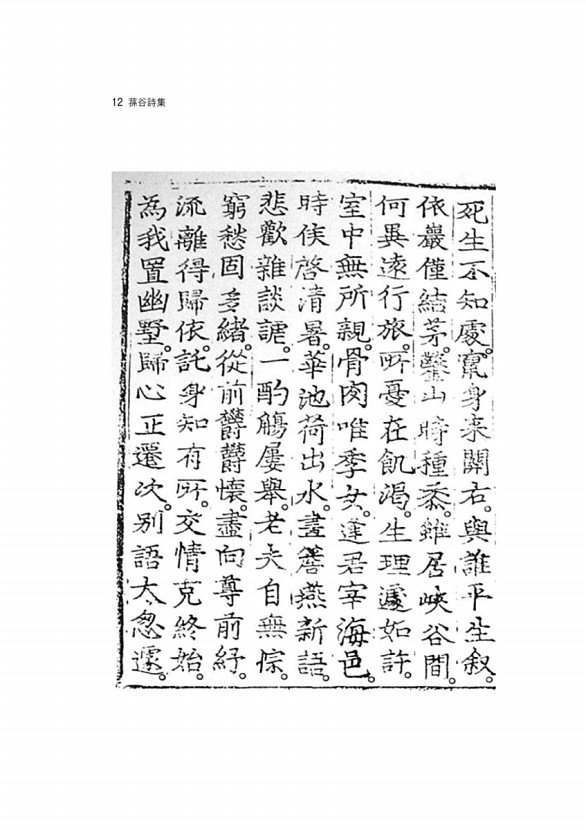 12 蓀谷詩集
死生不知處。竄身来關右。與誰平生叙。
依巖僅結茅。鑿山時種黍。雖居峽谷間。
何異遠行旅。所憂在飢渴。生理遽如許。
室中無所親。骨肉唯季女。逢君宰海邑。
時俟啓清暑。華池荷出水。畫簷燕新語。
悲歡雜談謔。一酌觴屢舉。老夫自無悰。
窮愁固多緒。從前欝欝懷。盡向尊前紓。
流離得歸依。託身知有所。交情克終始。
為我置幽墅。歸心正遷次。別語太忽遽。